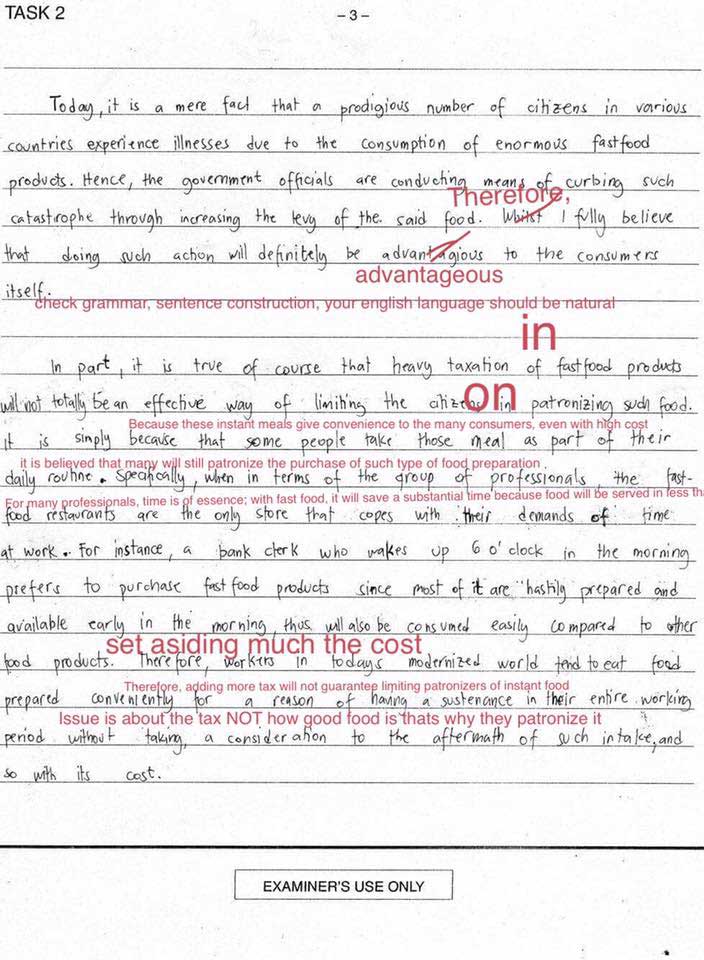 TASK 2
– 3 –
Today, it is a mere fact that a prodigious number of citizens in various
countries experience illnesses due to the consumption of enormous fastfood
products. Hence, the government officials are conducting means of curbing such
Therefore,
catastrophe through increasing the levy of the said food. Whilst I fully believe
that doing such action will definitely be advantagious to the consumers
advantageous
itself.
check grammar, sentence construction, your english language should be natural
in
In part, it is true of course that heavy taxation of fastfood products
on
will not totally be an effective way of limiting the citizens in patronizing such food.
Because these instant meals give convenience to the many consumers, even with high cost
it is simply because that some people take those meal as part of their
it is believed that many will still patronize the purchase of such type of food preparation .
daily routine. Specifically, when in terms of the group of professionals, the fast-
For many professionals, time is of essence; with fast food, it will save a substantial time because food will be served in less th
food restaurants are the only store that copes with their demands of time
at work. For instance, a bank clerk who wakes up 6 o'clock in the morning
prefers to purchase fastfood products since most of it are hastily prepared and
available early in the morning, thus will also be consumed easily compared to other
set asiding much the cost
food products. Therefore, workers in todays modernized world tend to eat food
Therefore, adding more tax will not guarantee limiting patronizers of instant food
prepared conveniently for a reason of having a sustenance in their entire working
Issue is about the tax NOT how good food is thats why they patronize it
period without taking, a consideration to the aftermath of such intake, and
so with its cost.
EXAMINER'S USE ONLY